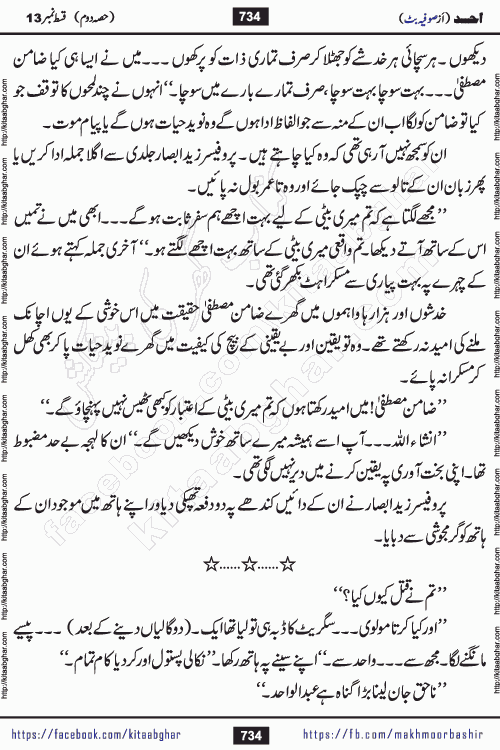 احمد (از صوفیہ بٹ) 734 (حصہ دوم) قسط نمبر 13
دیکھوں۔ ہر سچائی ہر خدشے کو جھٹلا کر صرف تمہاری ذات کو پرکھوں ۔۔۔ میں نے ایسا ہی کیا ضامن
مصطفیٰ۔۔۔ بہت سوچا بہت سوچا، صرف تمہارے بارے میں سوچا۔‘‘ انہوں نے چند لمحوں کا توقف جو
کیا تو ضامن کو لگا اب ان کے منہ سے جو الفاظ ادا ہوں گے وہ نوید حیات ہوں گے یا پیام موت۔
ان کو سمجھ نہیں آ رہی تھی کہ وہ کیا چاہتے ہیں۔ پروفیسر زید ابصار جلدی سے اگلا جملہ ادا کریں یا
پھر زبان ان کے تالو سے چپک جائے اور وہ تا عمر بول نہ پائیں۔
’’مجھے لگتا ہے کہ تم میری بیٹی کے لیے بہت اچھے ہم سفر ثابت ہو گے۔۔۔ ابھی میں نے تمہیں
اس کے ساتھ آتے دیکھا۔ تم واقعی میری بیٹی کے ساتھ بہت اچھے لگتے ہو۔‘‘ آخری جملہ کہتے ہوئے ان
کے چہرے پہ بہت پیاری سے مسکراہٹ بکھر گئی تھی۔
خدشوں اور ہزار ہا واہموں میں گھرے ضامن مصطفیٰ حقیقت میں اس خوشی کے یوں اچانک
ملنے کی امید نہ رکھتے تھے۔ وہ تو یقین اور بے یقینی کے بیچ کی کیفیت میں گھرے نوید حیات پا کر بھی کھل
کر مسکرا نہ پائے۔
’’ضامن مصطفیٰ! میں امید رکھتا ہوں کہ تم میری بیٹی کے اعتبار کو کبھی ٹھیس نہیں پہنچاؤ گے۔‘‘
’’انشاء اللہ۔۔۔ آپ اسے ہمیشہ میرے ساتھ خوش دیکھیں گے۔‘‘ ان کا لہجہ بے حد مضبوط
تھا۔ اپنی بخت آوری پہ یقین کرنے میں دیر نہیں لگی تھی۔
پروفیسر زید ابصار نے ان کے دائیں کندھے پہ دو دفعہ تھپکی دیا اور اپنے ہاتھ میں موجود ان کے
ہاتھ کو گرمجوشی سے دبایا۔
☆......☆......☆
’’تم نے قتل کیوں کیا؟‘‘
’’اور کیا کرتا مولوی۔۔۔ سگریٹ کا ڈبہ ہی تو لیا تھا ایک۔ (دو گالیاں دینے کے بعد) ۔۔۔ پیسے
مانگنے لگا۔ مجھ سے۔۔۔ واحد سے۔‘‘ اپنے سینے پہ ہاتھ رکھا۔ ’’نکالی پستول اور کر دیا کام تمام۔‘‘
’’ناحق جان لینا بڑا گناہ ہے عبدالواحد۔‘‘
https://facebook.com/kitaabghar 734 https://fb.com/makhmoorbashir
http://kitaabghar.com
facebook.com/kitaabghar
kitaabghar.com